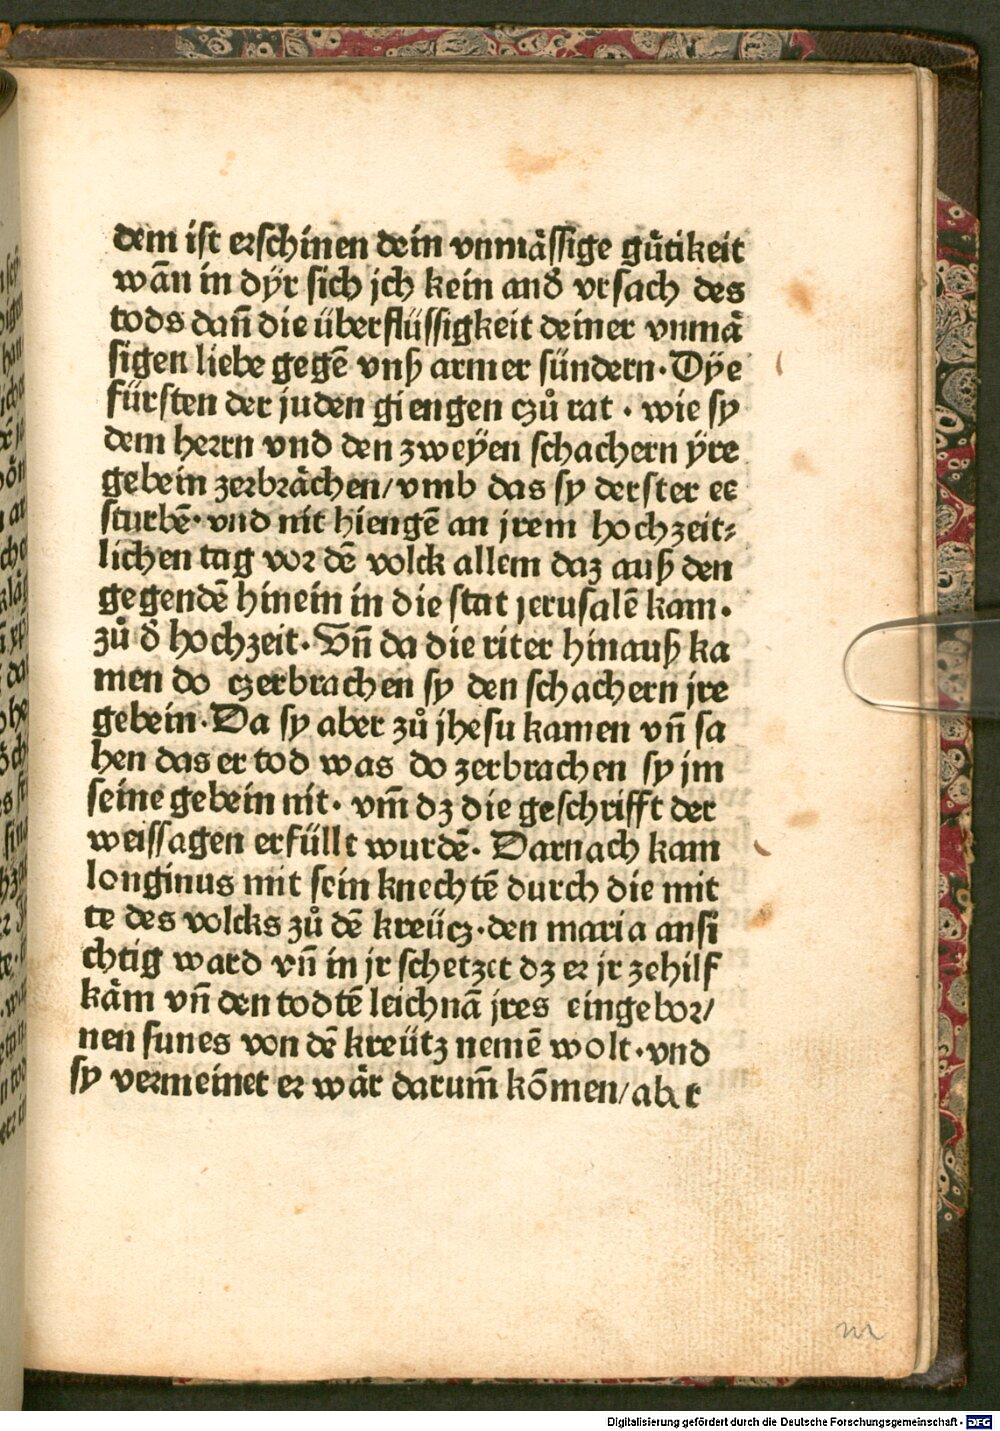 dem ist erschinen dein vnmässige gu̇tikeit
wān in dÿr sich jch kein andʼ vrsach des
tods dan̄ die überflüssigkeit deiner vnmä
sigen liebe gegē vnß armer sündern. Dÿe
fürsten der juden giengen czů rat . wie sy
dem herrn vnd den zweÿen schachern ÿre
gebein zerbrächen/vmb das sy derster ee
sturbē. vnd nit hiengē an jrem hochzeit⸗
lichen tag vor dē volck allem daz auß den
gegendē hinein in die stat jerusalē kam.
zů dʼ hochzeit. Vn̄ da die riter hinauß ka
men do czerbrachen sy den schachern jre
gebein. Da sy aber zů jhesu kamen vn̄ sa
hen das er tod was do zerbrachen sy jm
seine gebein nit. vm̄ dz die geschrifft der
weissagen erfüllt wurdē. Darnach kam
longinus mit sein knechtē durch die mit
te des volcks zů dē kreücz.den maria ansi
chtig ward vn̄ in jr schetzet dz er jr zehilf
käm vn̄ den todtē leichnā jres eingebor/
nen sunes von dē kreütz nemē wolt.vnd
sy vermeinet er wär darum̄ kōmen/aber
m
Digitalisierung gefördert durch die Deutsche Forschungsgemeinschaft - DFG